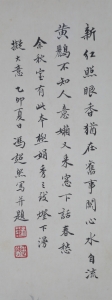 新紅照眼香猶在舊事關心水自流
黃鸝不知人意嬾又來窓下話春愁
余秋室有此本極娟秀之致燈下漫
擬大意乙卯夏日馮超然寫并題